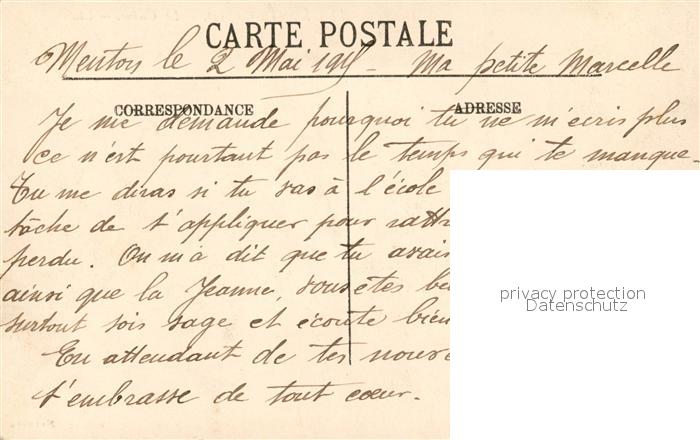 CARTE POSTALE
Menton le 2 Mai 1915 - Ma petite Marcelle
CORRESPONDANCE ADRESSE
Je me demande pourquoi tu ne m'ecris plus
ce n'est pourtant pas le temps qui te manque-
Tu me diras si tu vas à l'école
tâche de t'appliquer pour rattr
perdu. On m'a dit que tu avais
ainsi que la Jeanne, vous êtes be
surtout sois sage et écoute bien
En attendant de tes nouve
t'embrasse de tout cœur.
privacy protection
Datenschutz